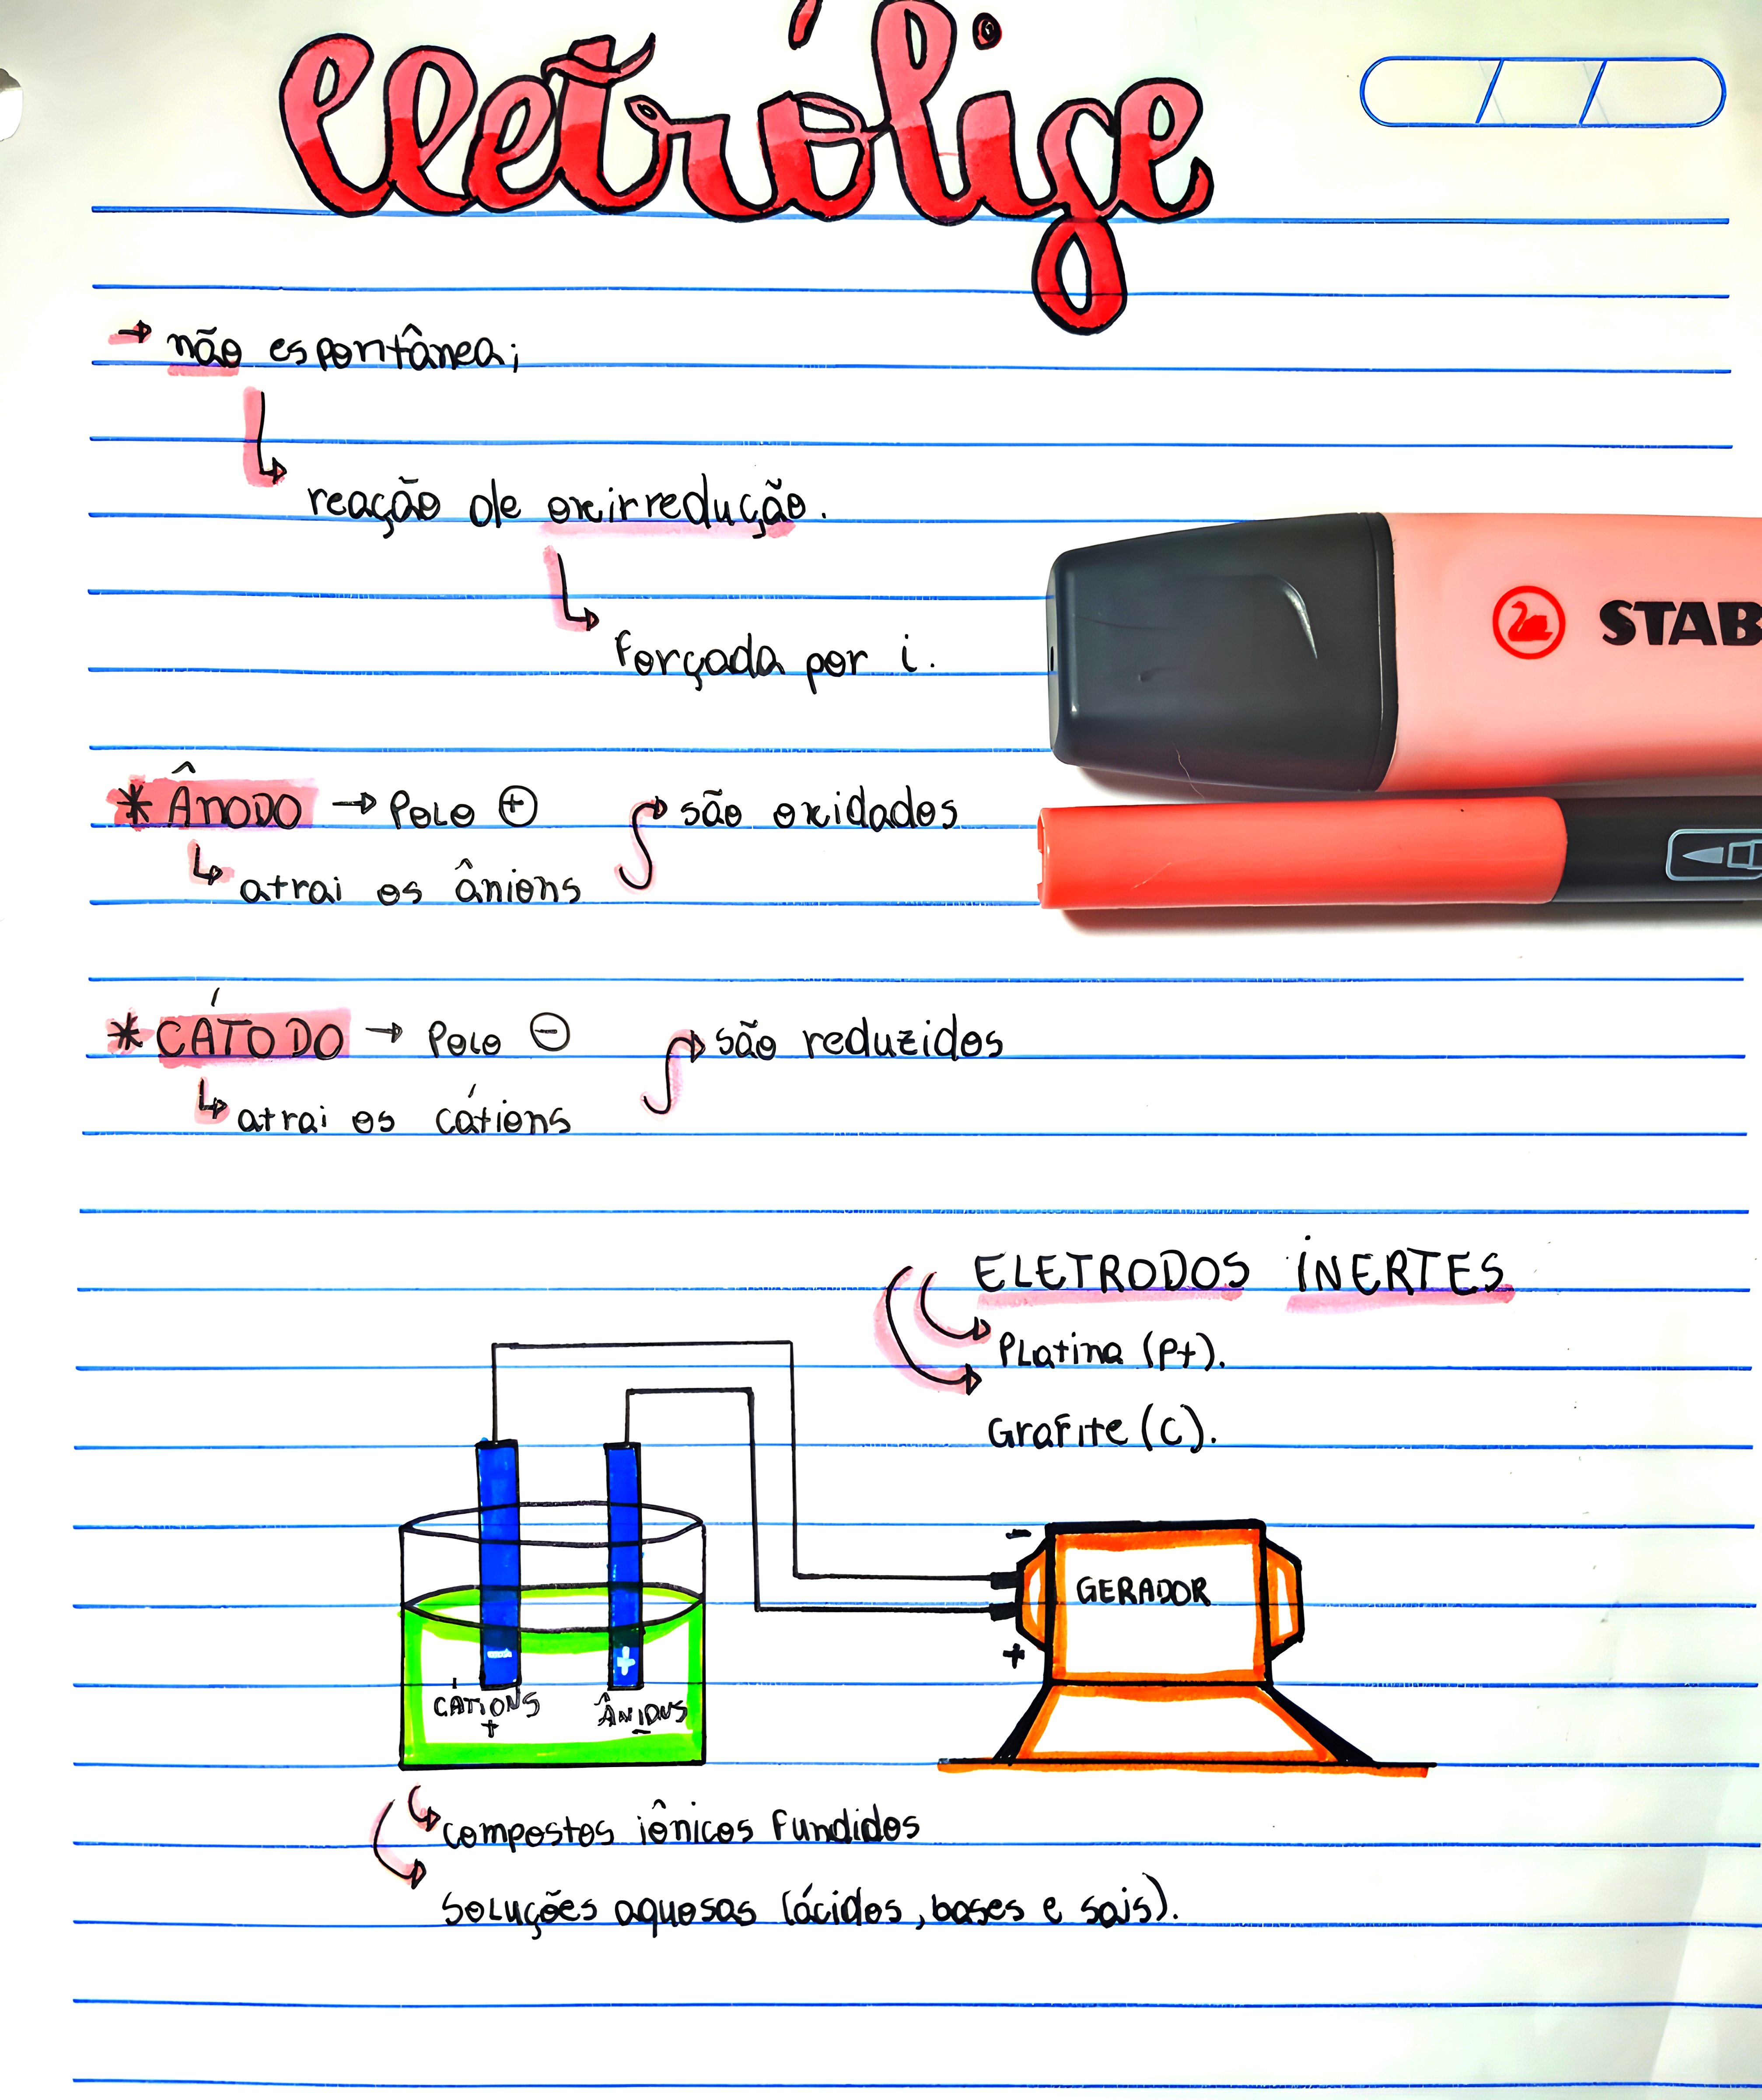 eletrólise
→ não espontânea;
↳ reação de oxirredução.
↳ forçada por i.
STAB
* Ânodo → Polo ⊕
↳ atrai os ânions → são oxidados
* CÁTODO → Polo ⊖
↳ atrai os cátions → são reduzidos
ELETRODOS INERTES
→ Platina (Pt).
→ Grafite (C).
-
GERADOR
+
- +
CÁTIONS ÂNIONS
+ -
→ compostos iônicos fundidos
→ soluções aquosas (ácidos, bases e sais).